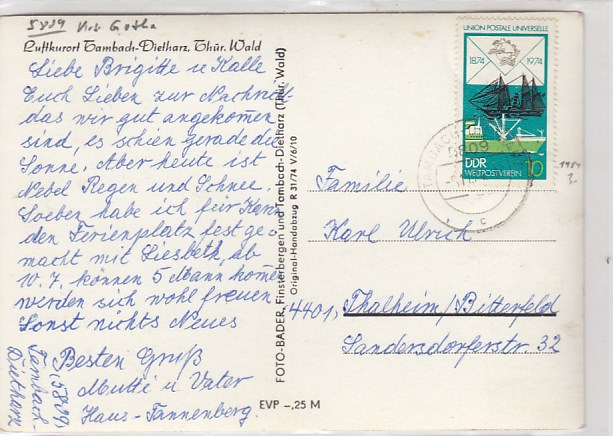 5809 Krs Gotha
Luftkurort Tambach-Dietharz, Thür. Wald
Liebe Brigitte u Kalle
Euch Lieben zur Nachricht
das wir gut angekommen
sind, es schien gerade die
Sonne. Aber heute ist
Nebel Regen und Schnee.
Soeben habe ich für
den Ferienplatz fest ge=
macht mit Liesbeth, ab
10.7. können 5 Mann kommen
werden sich wohl freuen
Sonst nichts Neues
Besten Gruß
Mutti u Vater
Haus-Tannenberg
(5809)
Tambach-
Dietharz
FOTO-BADER, Finsterbergen und Tambach-Dietharz (Thür. Wald)
Original-Handabzug R 31/74 V/6/10
EVP -,25 M
UNION POSTALE UNIVERSELLE
1874 1974
DDR
WELTPOSTVEREIN 10
TAMBACH
5809
c
Familie
Karl Ulrich
4401, Thalheim/Bitterfeld
Sandersdorferstr. 32